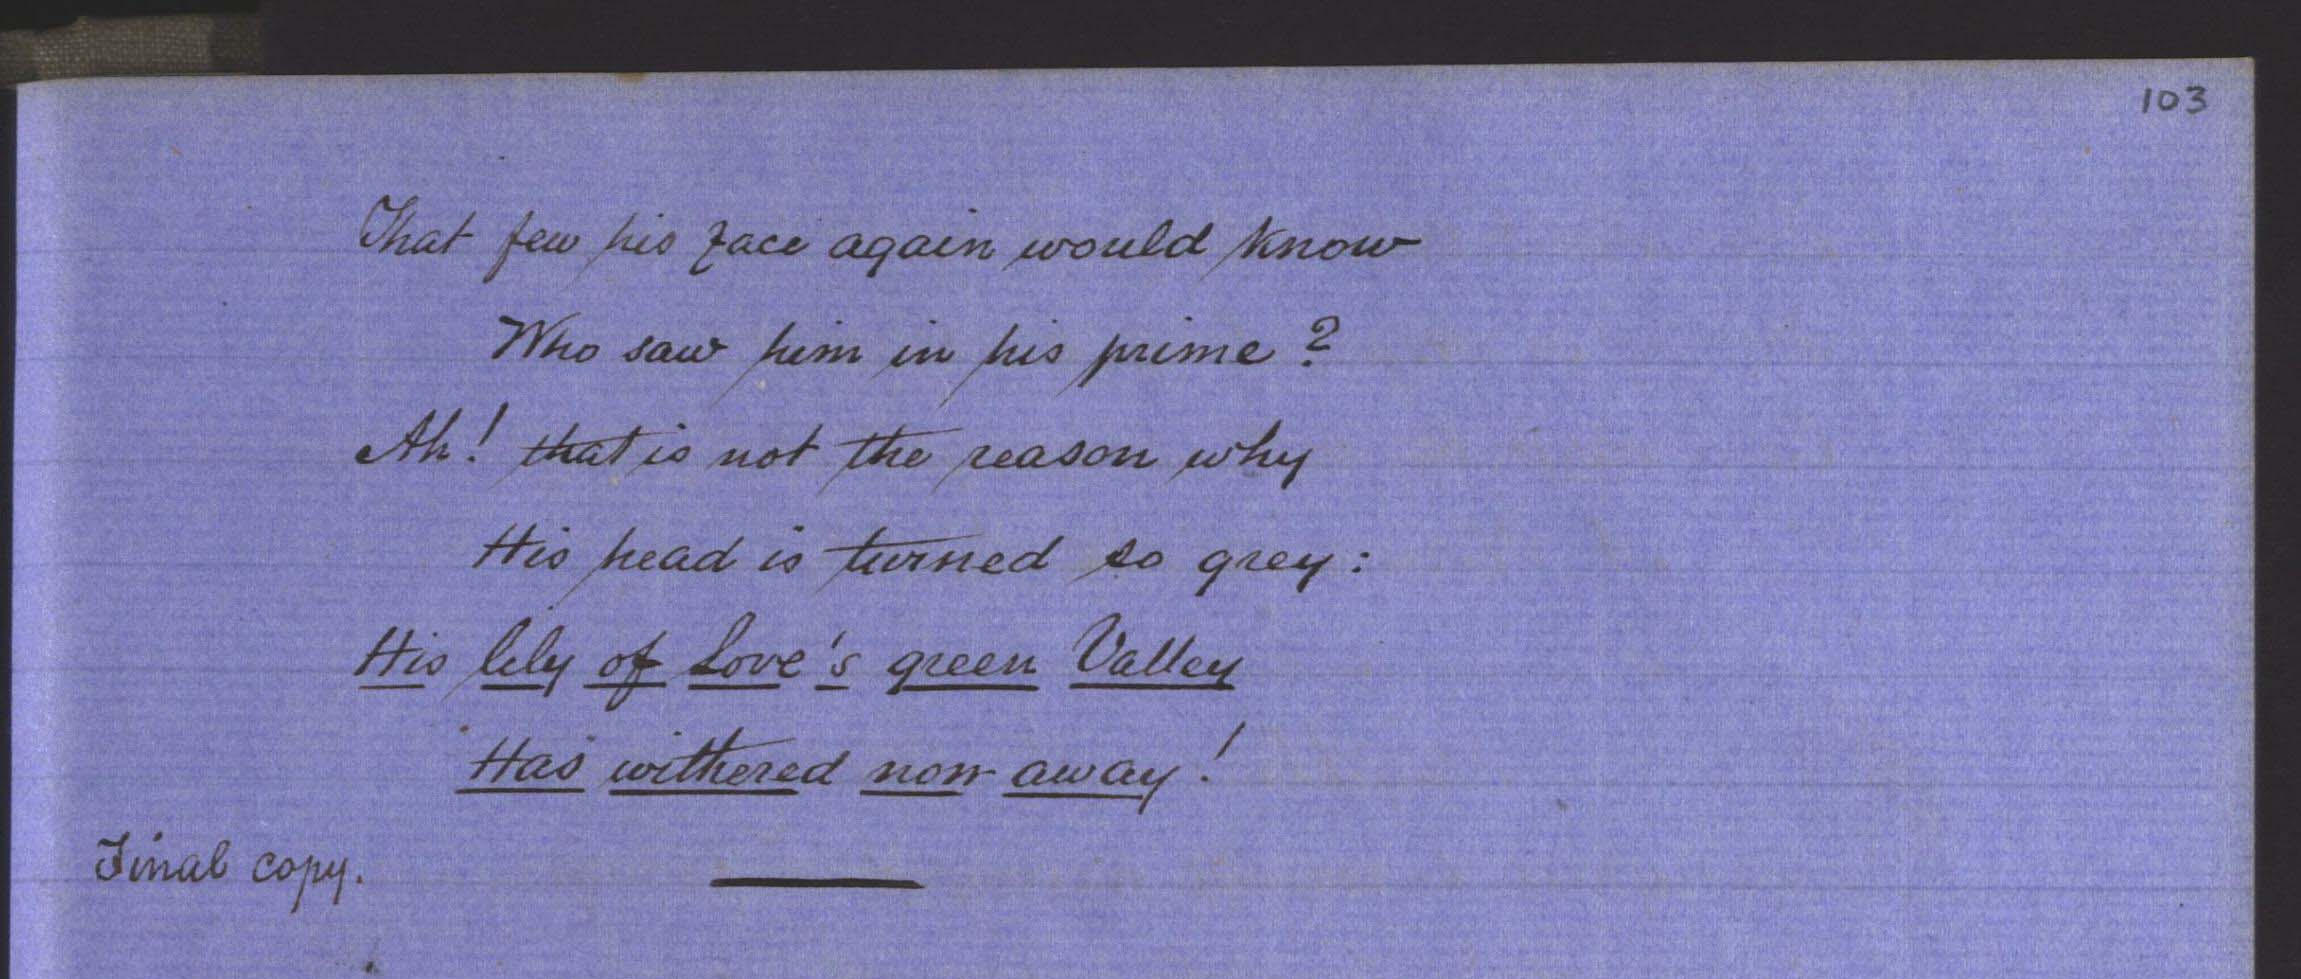 103
That few his face again would know
Who saw him in his prime?
Ah! that is not the reason why
His head is turned so grey:
His lily of Love's green Valley
Has withered now away!
Final copy.